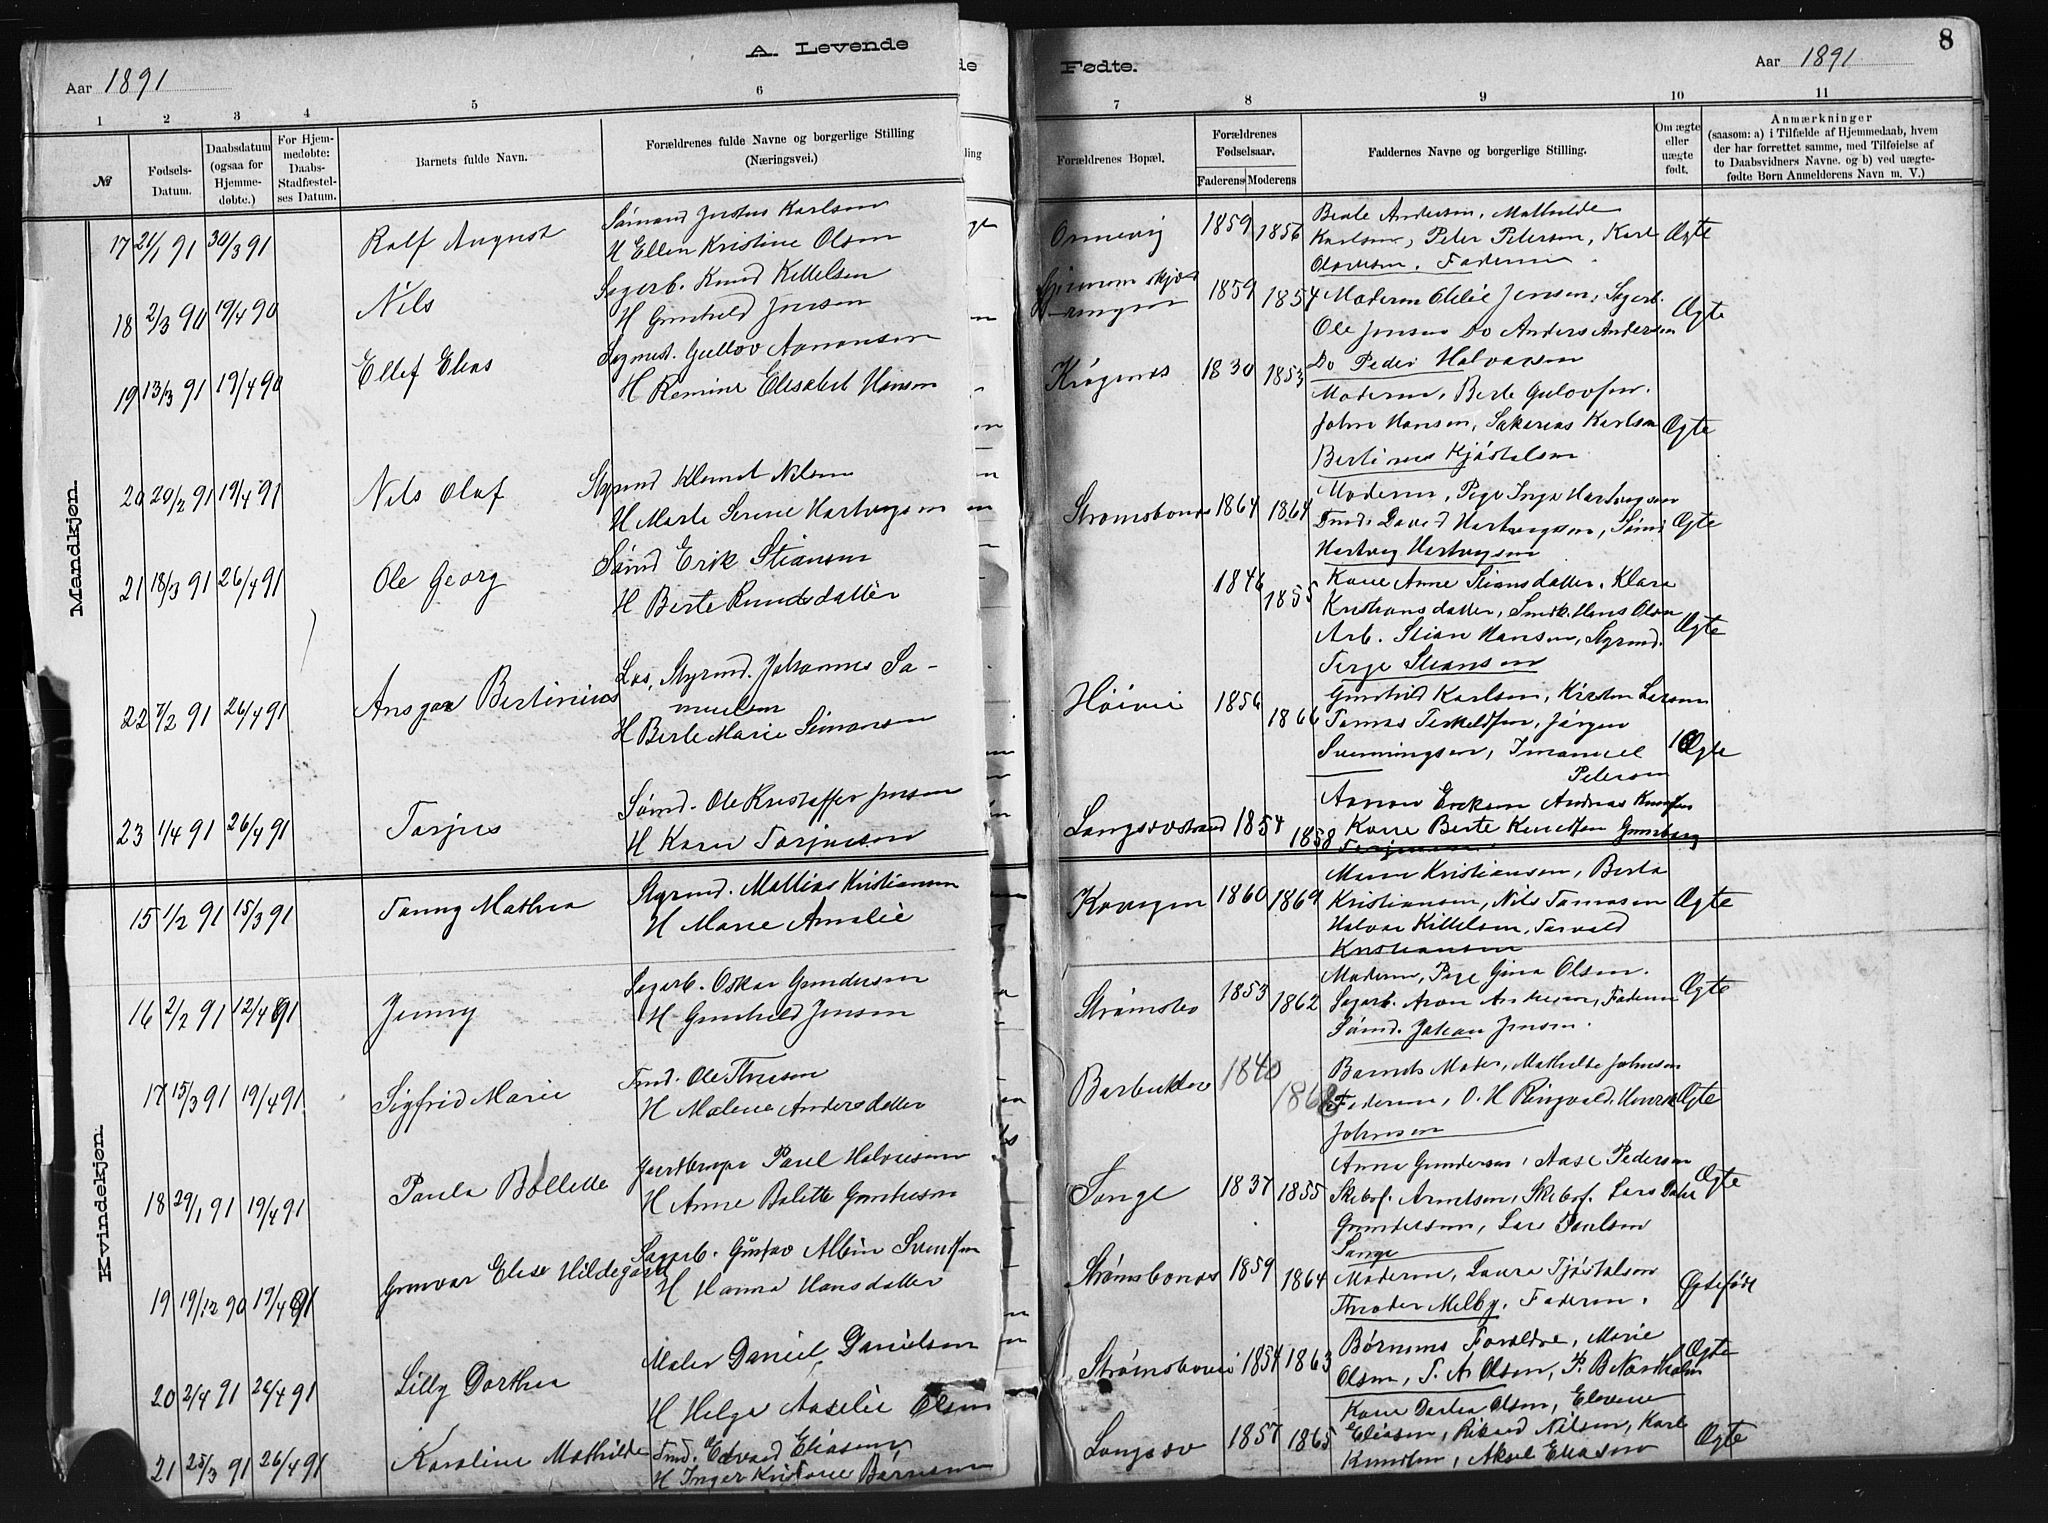 A. Levende
Aar 1891
1 2 3 4 5 6
№
Fødsels-
Datum.
Daabsdatum
(ogsaa for
Hjemme-
døbte.)
For Hjem-
medøbte:
Daabs-
Stadfæstel-
ses Datum.
Barnets fulde Navn.
Forældrenes fulde Navne og borgerlige Stilling
(Næringsvei.)
Mandkjøn.
17 21/1 91 30/3 91 Ralf August
Sømand Justus Karlsen
H Ellen Kristine Olsen
18 2/3 90 19/4 90 Nils
Sagarb. Knud Kittelsen
H Gunhild Jensen
19 13/3 91 19/4 90 Ellef Elias
Sagmest. Gullov Aanonsen
H Remine Elisabet Hansen
20 20/2 91 19/4 91 Nils Olaf
Styrmd Klemet Nilsen
H Marte Serine Hartvigsen
21 18/3 91 26/4 91 Ole Georg
Sømd Erik Stiansen
H Berte Knudsdatter
22 7/2 91 26/4 91 Ansgar Bertinius
Los, Styrmd. Johannes Sa-
muelsen
H Berte Marie Simonsen
23 1/4 91 26/4 91 Tarjus
Sømd. Ole Kristoffer Jensen
H Karen Tarjusson
Kvindekjøn.
15 1/2 91 15/3 91 Fanny Mathea
Styrmd. Mathias Kristiansen
H Marie Amalie
16 2/2 91 12/4 91 Jenny
Sagarb. Oskar Gundersen
H Gunhild Jensen
17 15/3 91 19/4 91 Sigfrid Marie
Tmd. Ole Thresen
H Malene Andersdatter
18 29/1 91 19/4 91 Paula Bollette
Paul Halvorsen
H Anne Bolette Gundersen
19 19/12 90 19/4 91 Gunvar Elise Hildegard
Sagarb. Gustav Albin Svendsen
H Hanna Hansdatter
20 2/4 91 26/4 91 Lilly Dorthea
Maler Daniel Danielsen
H Helga Aaselie Olsen
21 25/3 91 26/4 91 Karoline Mathilde
Tmd. Edvard Eliasen,
H Inger Kristine Børresen
8
Fødte.
Aar 1891
7 8 9 10 11
Forældrenes Bopæl.
Forældrenes
Fødselsaar.
Faderens Moderens
Faddernes Navne og borgerlige Stilling.
Om ægte
eller
uægte
født.
Anmærkninger
(saasom: a) i Tilfælde af Hjemmedaab, hvem
der har forrettet samme, med Tilføielse af
to Daabsvidners Navne. og b) ved uægte-
fødte Børn Anmelderens Navn m. V.)
Ormevig 1859 1856
Beate Andersen, Mathilde
Karlsen, Peter Petersen, Karl
Olavesen, Faderen.
Ægte
1859 1854
Moderen Otelie Jensen, Sagarb.
Ole Jensen Do Anders Andersen
Do Peder Halvorsen
Ægte
Krøgenes 1830 1853
Moderen, Berte Gulovsen.
John Hansen, Sakarias Karlsen
Bertinus Kjøstelsen
Ægte
Strømsbones 1864 1864
Moderen, Pige Inga Hartvigsen
Tmd. David Hartvigsen, Sømd
Hartvig Hartvigsen
Ægte
1846 1855
Kone Anne Stiansdatter, Klara
Kristiansdatter, Smdk. Hans Olsen
Arb. Stian Hansen, Styrmd.
Terje Stiansen
Ægte
Høivig 1856 1866
Gunhild Karlsen, Kirsten Larsen
Tomas Terkeldsen, Jørgen
Svenningsen, Imanuel
Petersen
Ægte
Langsævstrand 1854 1858
Aanon Eriksen Andreas Knudsen
Kone Berte Knudsen Gunborg
Terjesen
Kovigen 1860 1869
Maren Kristiansen, Berta
Kristiansen, Nils Tomasen
Halvor Kittelsen, Torvald
Kristiansen
Ægte
Strømsbo 1853 1862
Moderen, Pige Gina Olsen.
Sagarb. Aron Andersen, Faderen
Sømd. Johan Jensen.
Ægte
Barbudalen 1840 1868
Barnets Moder, Mathilde Johnsen
Faderen, O. H Ringvald, Henrik
Johnsen
Ægte
Songe 1837 1855
Anna Gundersen, Aase Pedersen
Skibsf. Arntsen, Skibsf. Lars Peter
Gundersen, Lars Paulsen
Songe
Ægte
Strømsbones 1859 1864
Moderen, Laura Tjøstelsen
Theodor Melby, Faderen.
Ægtefødt
Strømsbones 1854 1863
Børnenes Forældre, Marie
Olsen, T. A Olsen, P. B Nordholm
Ægte
Langsæv 1857 1865
Kone Dorthea Olsen, Elevine
Eliasen, Rikard Nilsen, Karl
Knudsen, Aksel Eliasen
Ægte